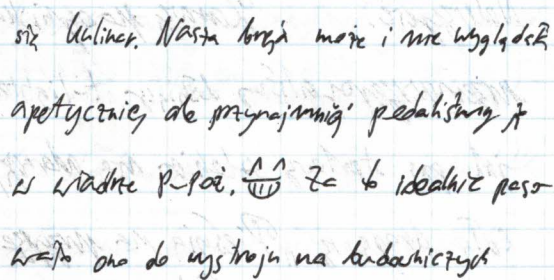 się kulinar. Nasza breja może i nie wyglądała
apetycznie, ale przynajmniej podaliśmy ją
w wiadrze P-Poż. Za to idealnie paso-
wało ono do wystroju na budowniczych